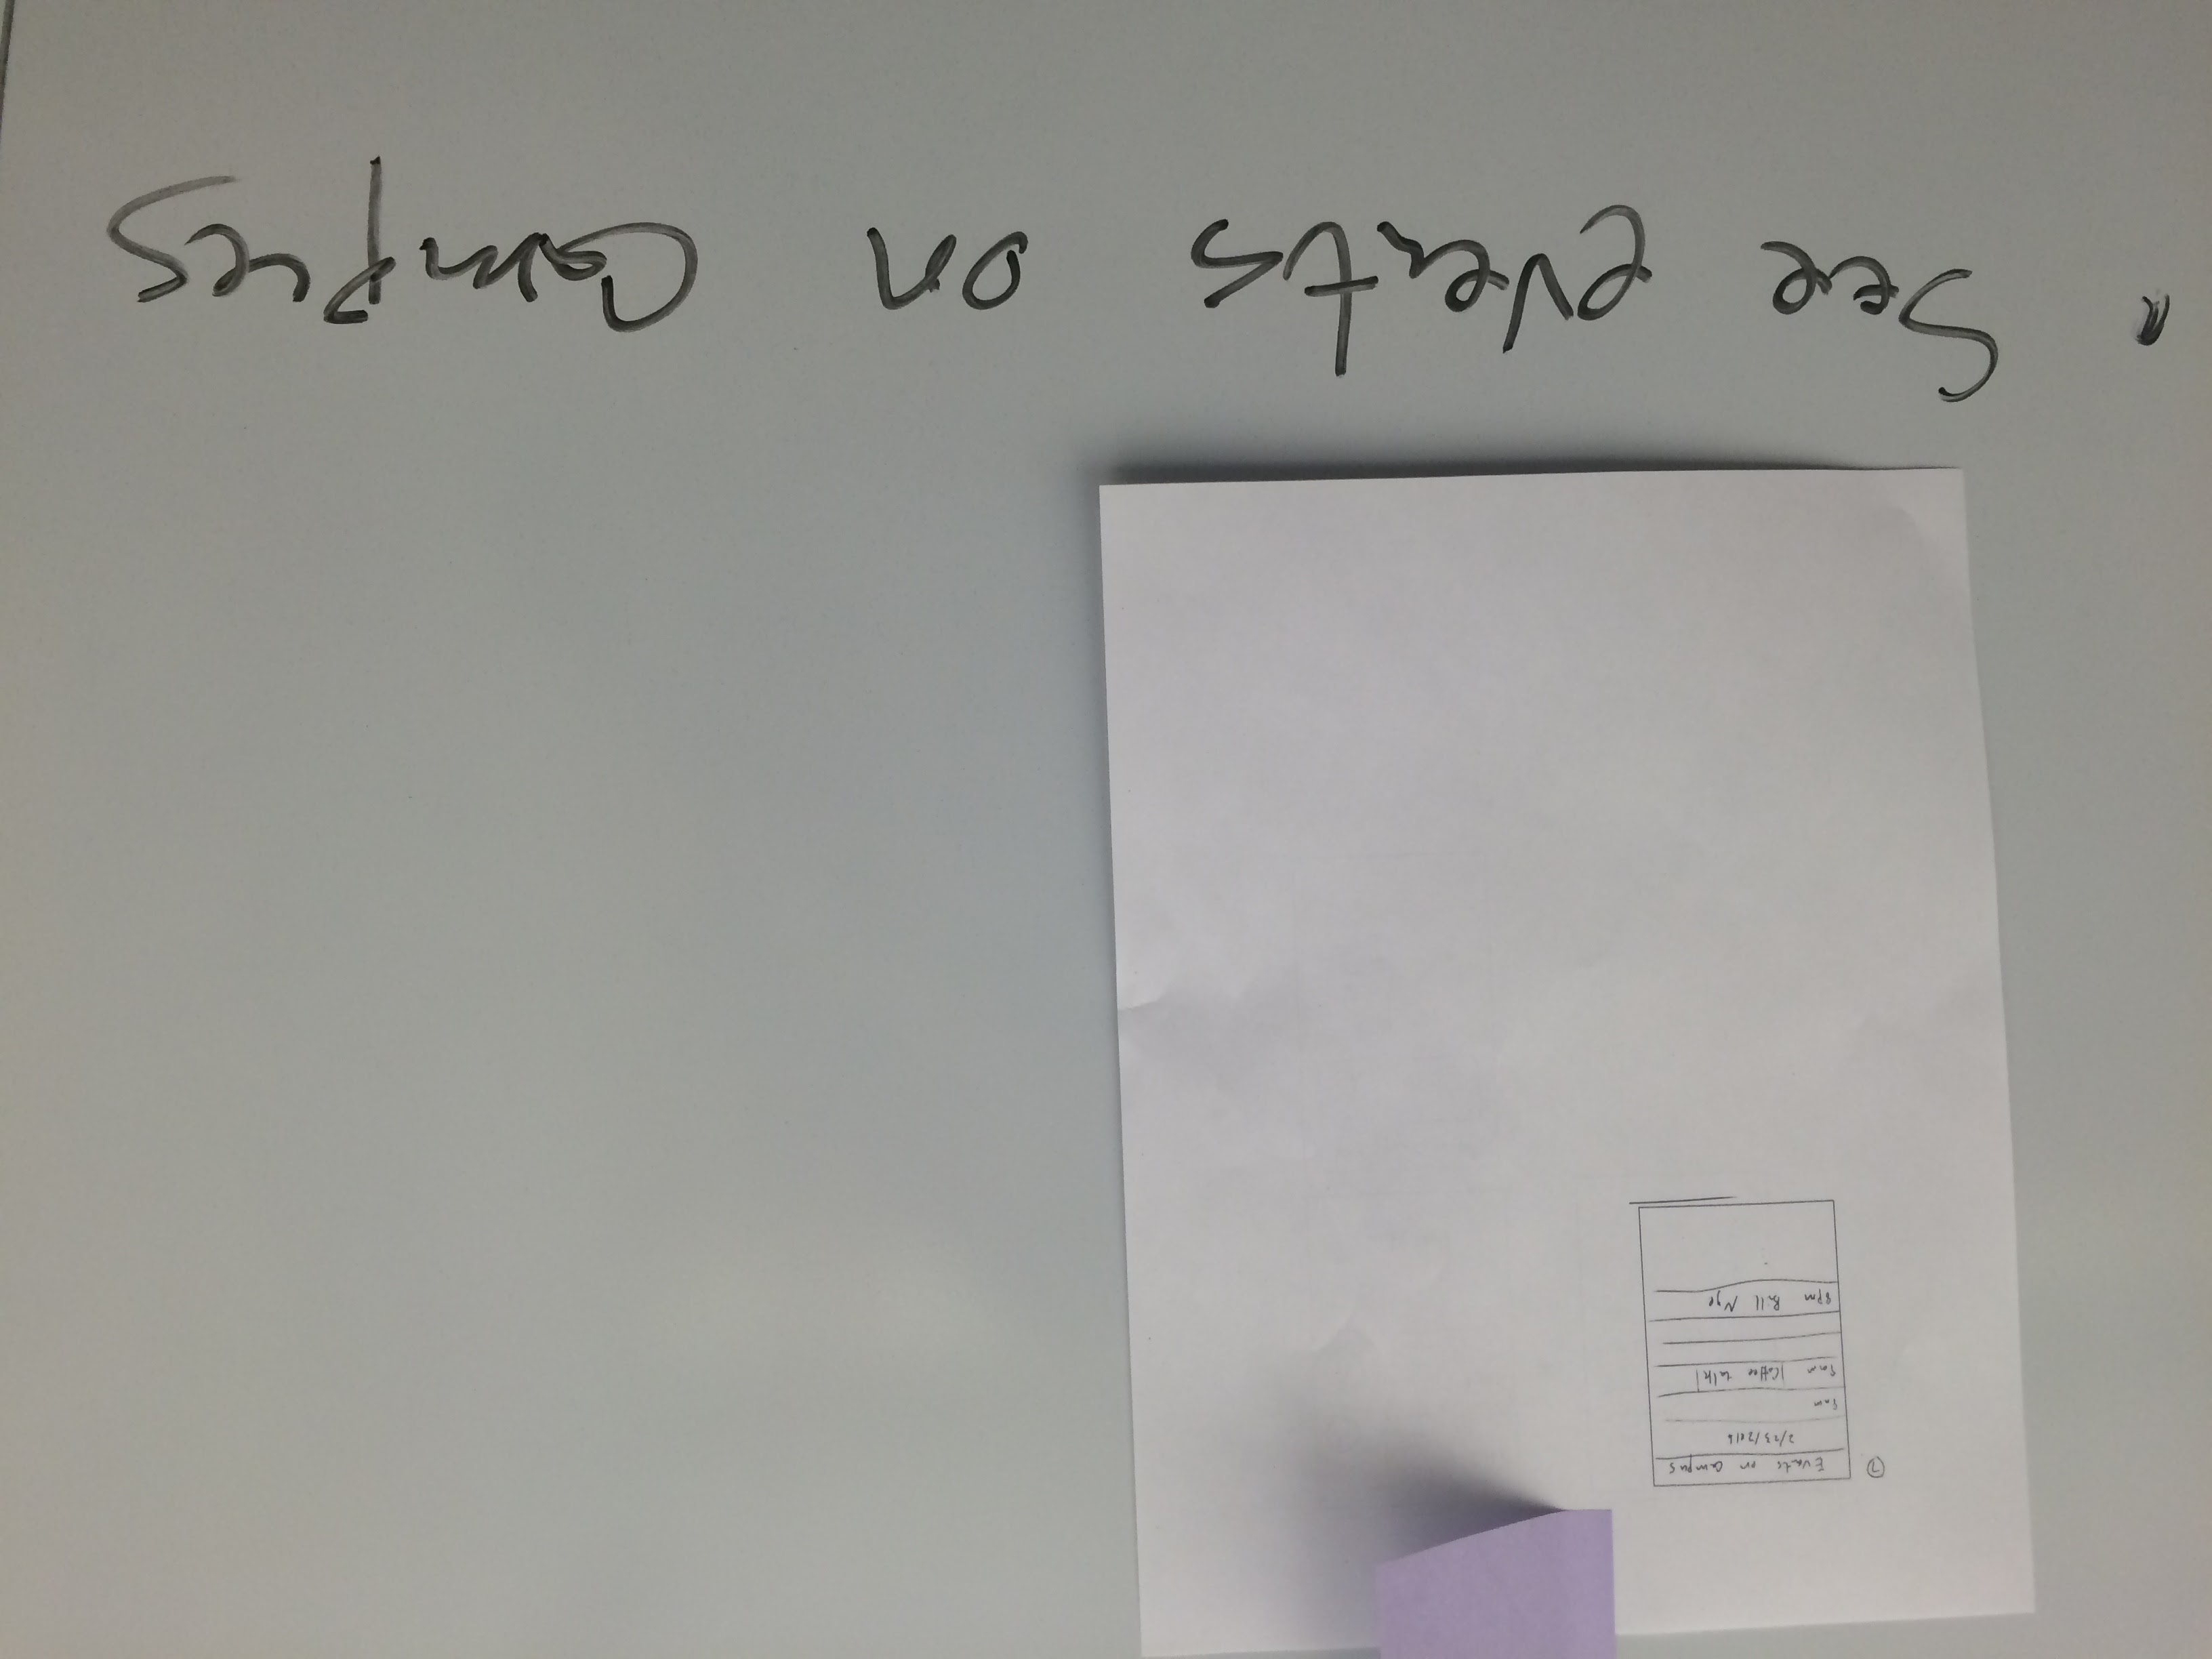 7
Events on campus
2/23/2016
8am
9am Coffee talk
8pm Bill Nye
See events on Campus